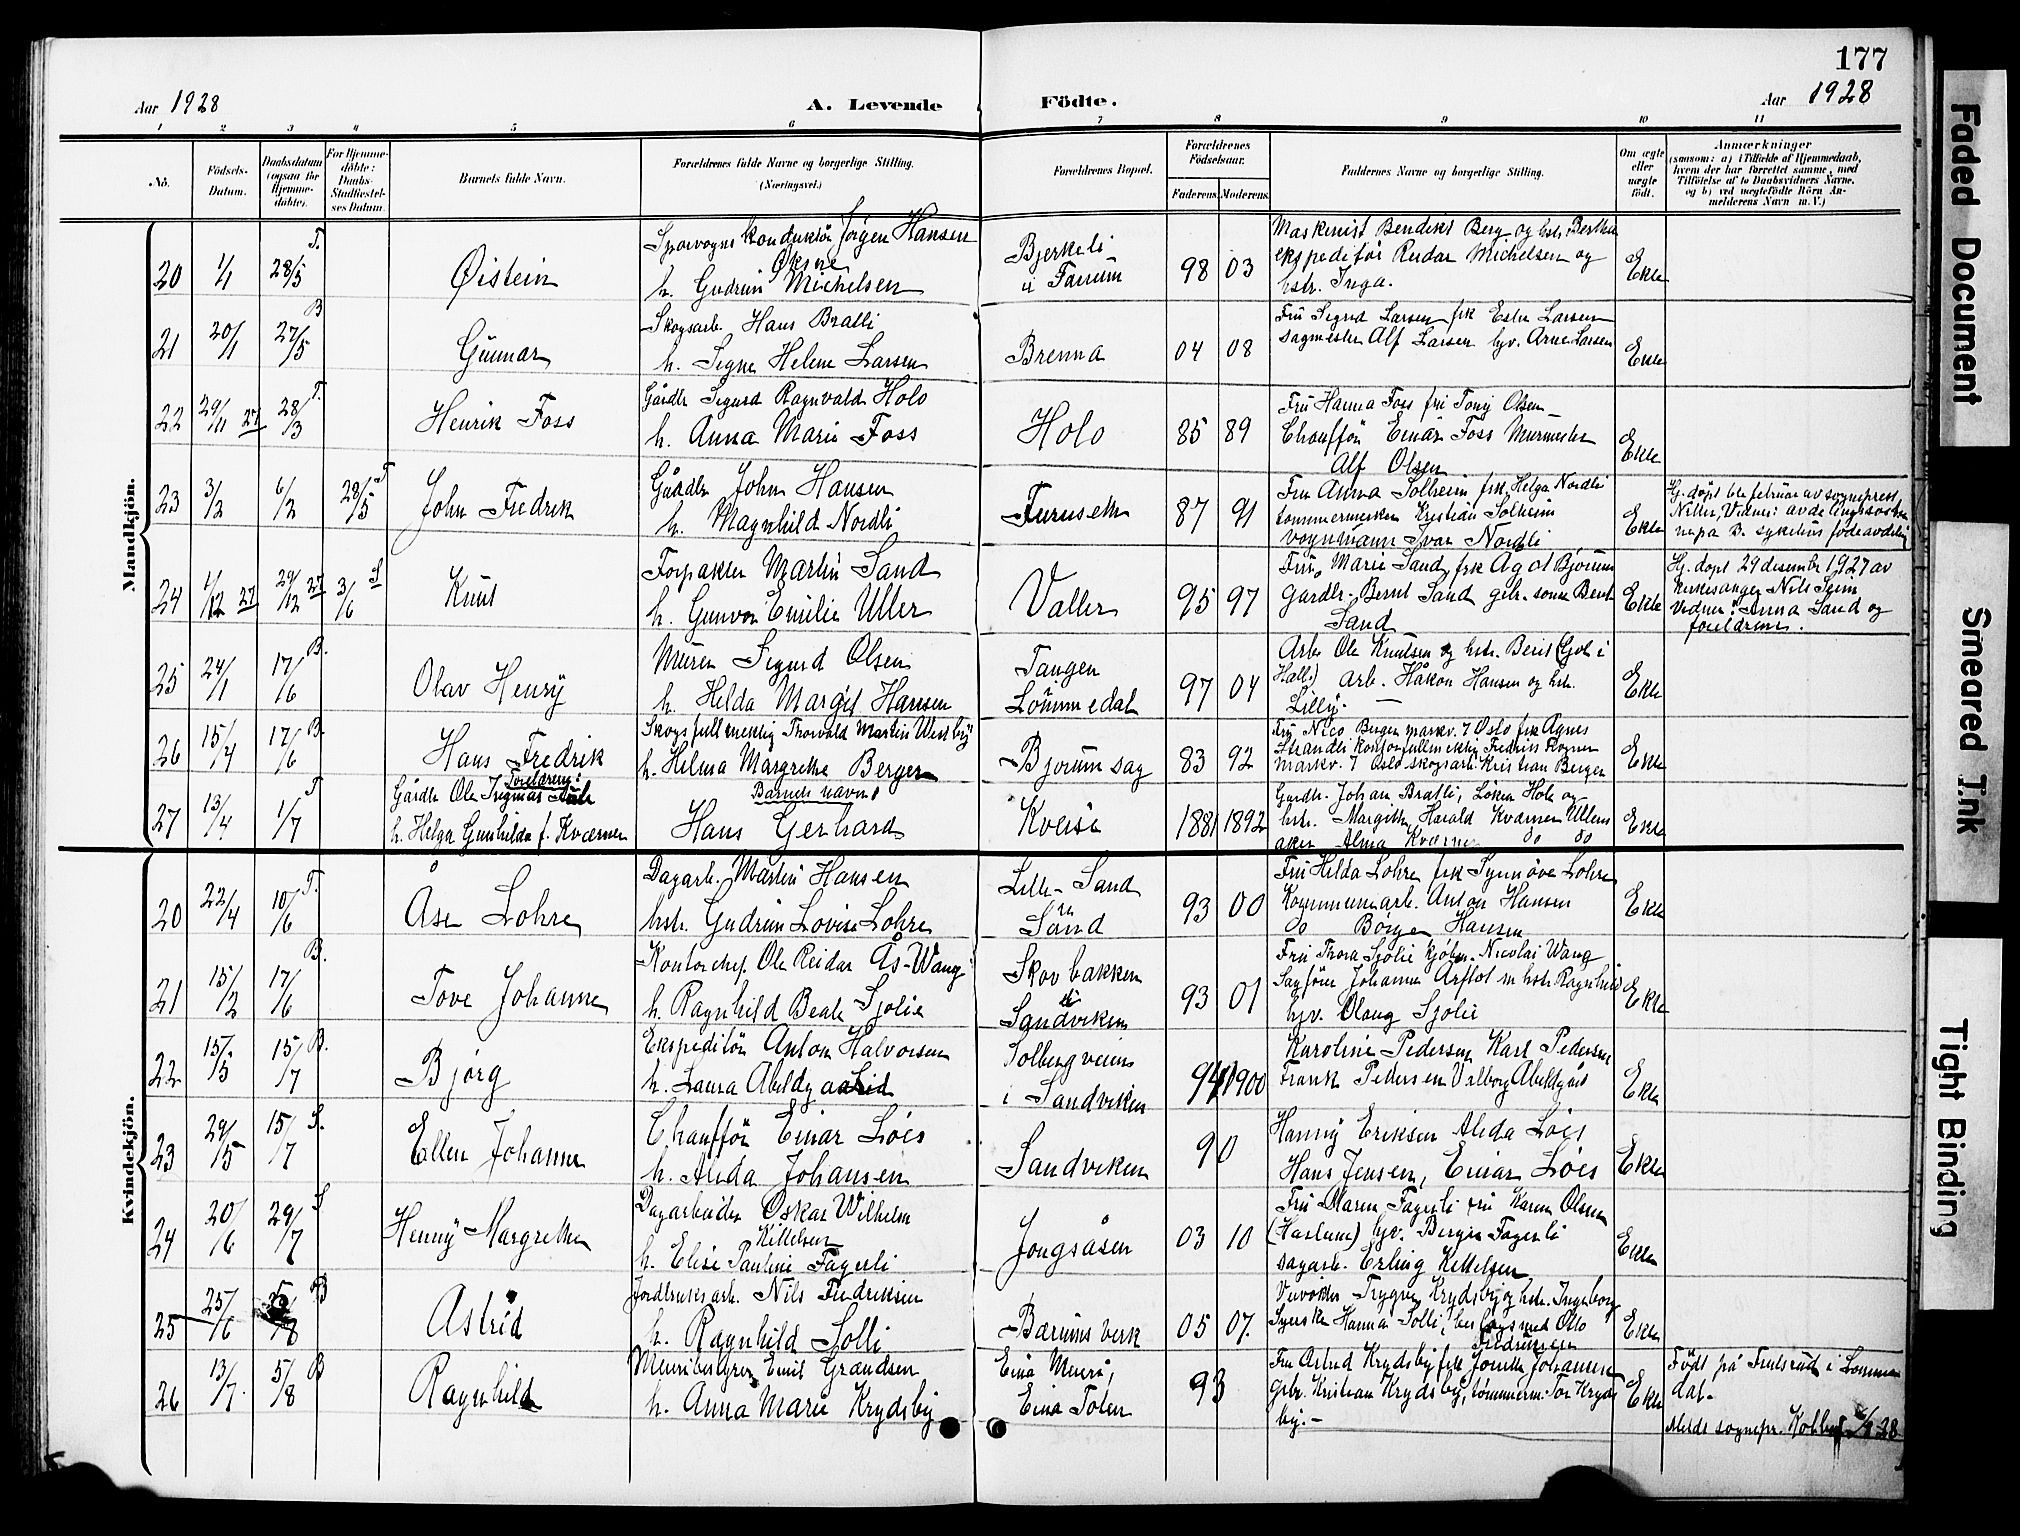 177
Aar 1928
A. Levende Födte.
Aar 1928
1 2 3 4 5 6 7 8 9 10 11
No.
Födsels-
Datum.
Daabsdatum
(ogsaa for
Hjemme-
döbte).
For Hjemme-
döbte:
Daabs-
Stadfæstel-
ses Datum.
Barnets fulde Navn.
Forældrenes fulde Navne og borgerlige Stilling.
(Næringsvei.)
Forældrenes Bopæl.
Forældrenes
Födselsaar.
Faderens. Moderens.
Faddernes Navne og borgerlige Stilling.
Om ægte
eller
uægte
født.
Anmærkninger
(saasom: a) i Tilfælde af Hjemmedaab,
hvem der har forrettet samme, med
Tilföielse af to Daabsvidners Navne,
og b) ved uægtefödte Börn An-
melderens Navn m. V.)
Mandkjön.
20 1/1 28/5 T. Øistein
Sporvognskonduktör Jörgen Hansen
Oksne
h. Gudrun Michelsen
Bjerkeli
i Tanum
98 03
Maskinist Bendikt Berg og hstr. Berthe
ekspeditör Reidar Michelsen og
hstr. Inga.
Ekte
21 20/1 27/5 B Gunnar
Skogsarb. Hans Bratli
h. Signe Helene Larsen
Brenna
04 08
Fru Sigrid Larsen frk Ester Larsen
sagmester Alf Larsen ugv. Arne Larsen
Ekte
22 29/11 27 28/3 T. Henrik Foss
Gårdbr Sigurd Ragnvald Holo
h. Anna Marie Foss
Holo
85 89
Fru Hanna Foss fru Tony Olsen
Chaufför Einar Foss Murmester
Alf Olsen
Ekte
23 3/2 6/2 28/5 T John Fredrik
Gårdbr John Hansen
h. Magnhild Nordli
Furuseth
87 91
Fru Anna Solheim frk. Helga Nordli
tømmermerker Kristian Solheim
vognmann Ivar Nordli
Ekte
Hj. døpt 6te februar av sogneprest
Niller, Vidner: avdelingssøster
B. sykehus fødeavdeling
24 1/12 27 29/12 27 3/6 S Knut
Forpakter Martin Sand
h. Gunvor Emilie Uller
Valler
95 97
Fru Marie Sand, frk Agot Bjørum
Gardbr. Bernt Sand gbr. sønn Bernt
Sand
Ekte
Hj. døpt 29 desember 1927 av
kirkesanger Nils Seim
vidner: Anna Sand og
foreldrene.
25 24/1 17/6 B. Olav Henry
Murer Sigurd Olsen
h. Hilda Margit Hansen
Tangen
i
Lommedal
97 04
Arb. Ole Knutsen og hstr. Berit (Gol i
Hall.) Arb. Håkon Hansen og hstr.
Lilly.
Ekte
26 15/4 17/6 B. Hans Fredrik
Skogsfullmektig Thorvald Martin Westby
h. Helma Margrethe Berger
Bjorum sag
83 92
Fru Nico Berger markv. 7 Oslo frk Agnes
Strandli kontorfullmektig Fredrik Rogner
markv. 7 Oslo skogsarb. Kristian Berger
Ekte
27 13/4 1/7 T
Foreldrene:
Gårdbr Ole Ingmar
h. Helga Gunhilda f. Kværner
Barnets navn
Hans Gerhard
Kveise
1881 1892
Gardbr. Johan Bratli, Løken Hole og
hstr. Margith, Harald Kværner Ullens
aker Alma Kværner do do
Ekte
Kvindekjön.
20 22/4 10/6 T. Åse Lohre
Dagarb. Martin Hansen
hstr. Gudrun Lovise Lohre
Lille-Sand
in
Sand
93 00
Fru Hilda Lohre frk Synnöve Lohre
Kommunearb. Anton Hansen
do Börge Hansen
Ekte
21 15/2 17/6 B. Tove Johanne
Kontorchef. Ole Reidar Ås-Wang
h. Ragnhild Beate Sjolie
Skovbakken
i
Sandviken
93 01
Fru Thora Sjölie kjøbm. Nicolai Wang
Sagförer Johannes Arflot m hstr. Ragnhild
ugv. Olaug Sjölie
Ekte
22 15/5 15/7 B. Bjørg
Ekspeditör Anton Halvorsen
h. Laura Abeldgaard
Solbergveien
i Sandviken
94 1900
Karoline Pedersen Karl Pedersen
Frank Pedersen Valborg Abeldgård
Ekte
23 29/5 15/7 S. Ellen Johanne
Chaufför Einar Löes
h. Alida Johansen
Sandviken
90
Hanny Eriksen Alida Löes
Hans Jensen, Einar Löes
Ekte
24 20/6 29/7 S Henny Margrethe
Dagarbeider Oskar Wilhelm
Kittelsen
h. Elise Pauline Fagerli
Jongsåsen
03 10
Fru Maren Fagerli fru Karen Olsen
(Haslum) ugv. Birger Fagerli
dagarb. Erling Kittelsen
Ekte
25 25/6 5/8 B Astrid
Jordbruksarb. Nils Fredriksen
h. Ragnhild Solli
Bærums verk
05 07.
Veivokter Trygve Krydsby og hstr. Ingeborg
Syerske Hanna Solli, beslagsmed Otto
Fredriksen
Ekte
26 13/7. 5/8 B Ragnhild
Murribestyrer Emil Grandsen
h. Anna Marie Krydsby
Eina Mureri,
Eina Toten
93
Fru Astrid Krydsby frk Jorunn Johannsen
Gbr. Kristian Krydsby, tømmerm. Tor Kryds
by.-
Ekte
Født på Trulsrud i Lomme
dal.-
Meldt sognepr. Kolbu 6/8 28
Faded Document
Smeared Ink
Tight Binding